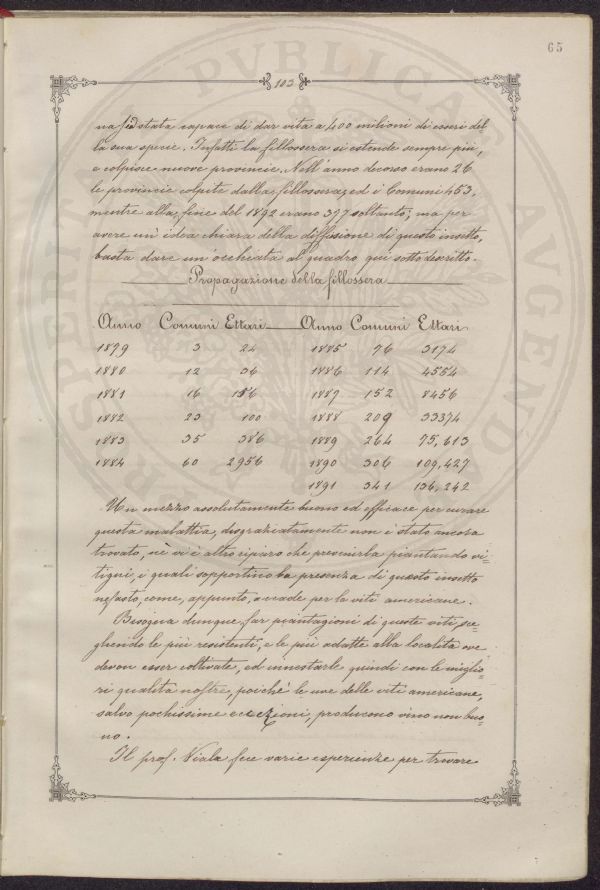 65
103
na sia stata capace di dar vita a 400 milioni di esseri del
la sua specie. Infatti la fillossera si estende sempre più,
e colpisce nuove provincie. Nell'anno decorso erano 26
le provincie colpite dalla fillossera, ed i Comuni 453,
mentre alla fine del 1892 erano 397 soltanto; ma per
avere un'idea chiara della diffusione di questo insetto,
basta dare un'occhiata al quadro qui sotto descritto.
Propagazione della fillossera
Anno Comuni Ettari Anno Comuni Ettari
1879 3 24 1885 76 3174
1880 12 36 1886 114 4554
1881 16 156 1887 152 8456
1882 23 100 1888 209 33374
1883 35 386 1889 264 75,613
1884 60 2956 1890 306 109,427
1891 341 136,242
Un mezzo assolutamente buono ed efficace per curare
questa malattia, disgraziatamente non è stato ancora
trovato, nè vi è altro riparo che prevenirla piantando vi=
tigni, i quali sopportino la presenza di questo insetto
nefasto, come, appunto, accade per le viti americane.
Bisogna dunque, far piantagioni di queste viti, sce=
gliendo le più resistenti, e le più adatte alla località ove
devon esser coltivate, ed innestarle quindi con le miglio=
ri qualità nostre, poichè le uve delle viti americane,
salvo pochissime eccezioni, producono vino non buo=
no.
Il prof. Viala fece varie esperienze per trovare
PVBLICAE AVGENDAE PROSPERITATI